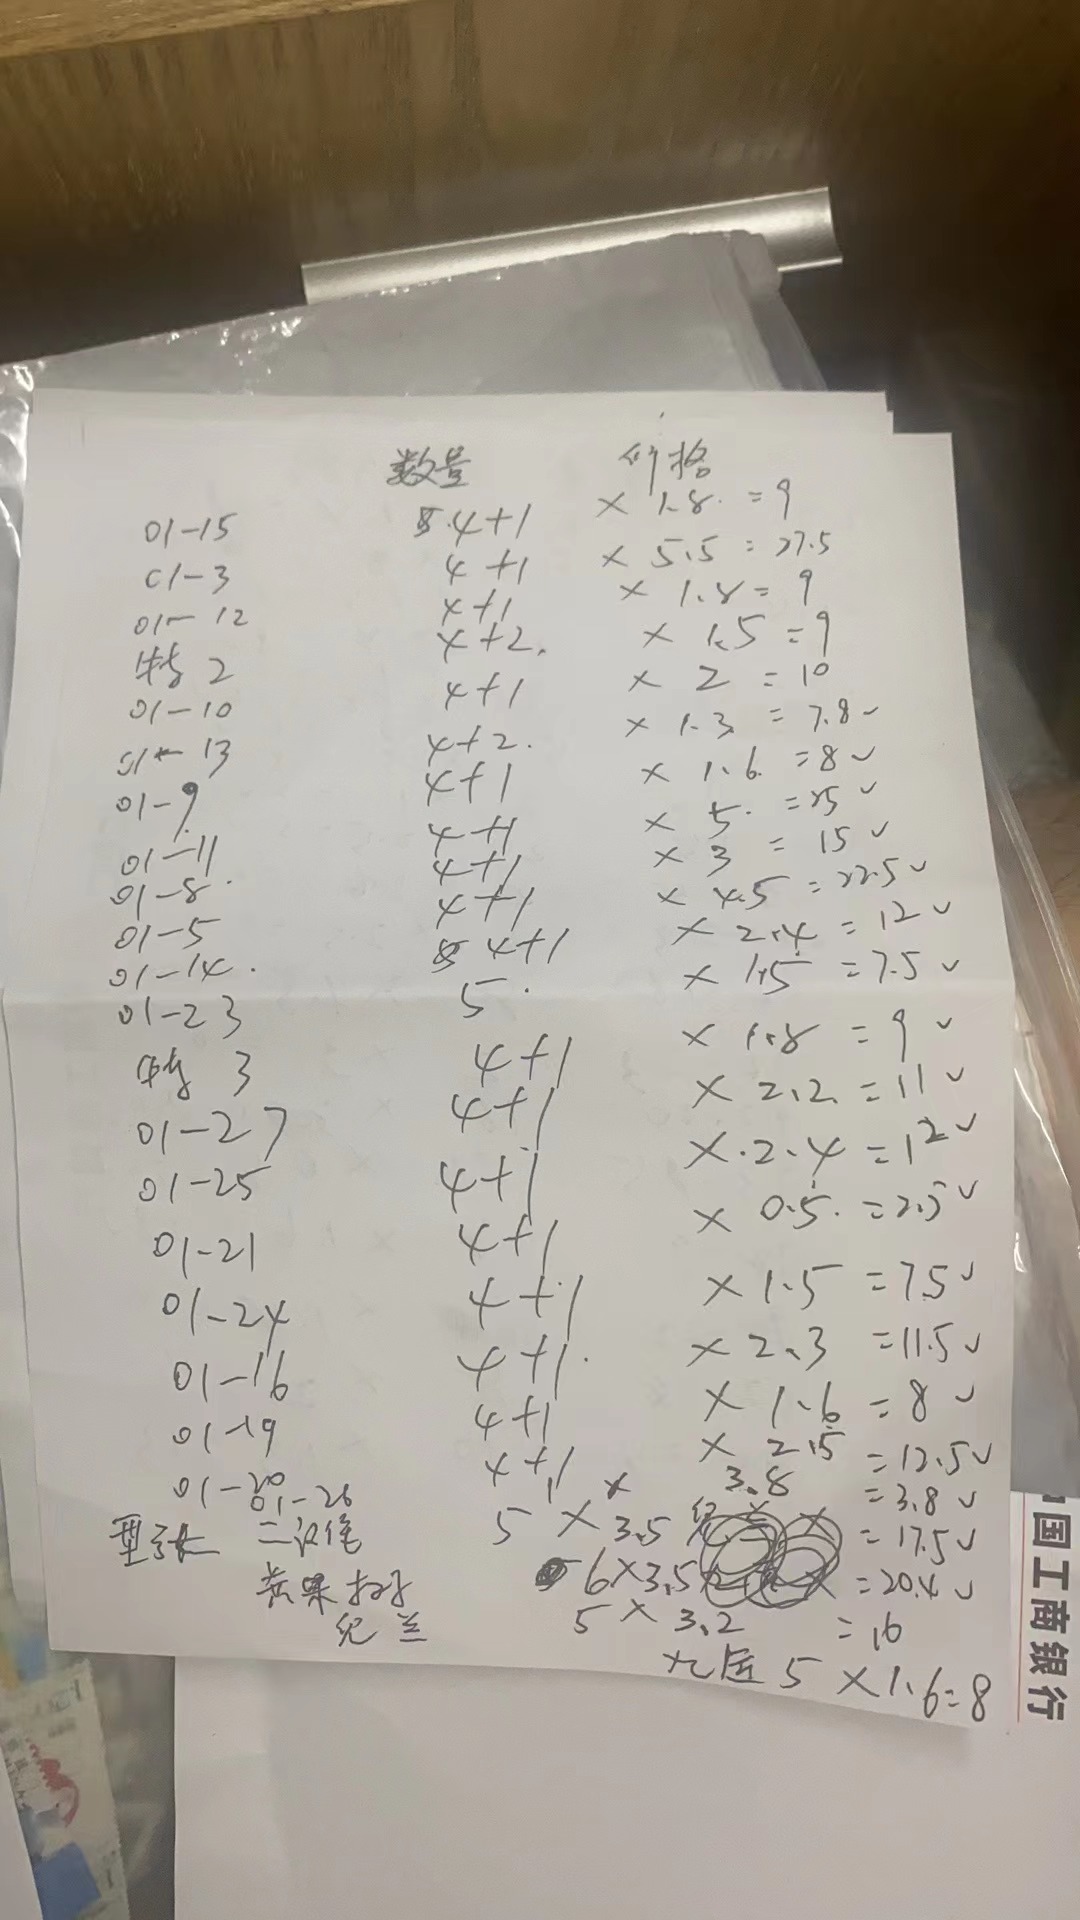 数量 价格
01-15 5.4+1 × 1.8. = 9
01-3 4+1 × 5.5 = 27.5
01-12 4+1 × 1.8 = 9
特2 4+2. × 1.5 = 9
01-10 4+1 × 2 = 10
01-13 4+2. × 1.3 = 7.8✓
01-9 4+1 × 1.6. = 8✓
01-11 4+1 × 5. = 25✓
01-8. 4+1 × 3 = 15✓
01-5 4+1 × 4.5 = 22.5✓
01-14. 4+1 × 2.4 = 12✓
01-23 5. × 1.5 = 7.5✓
特3 4+1 × 1.8 = 9✓
01-27 4+1 × 2.2. = 11✓
01-25 4+1 ×.2.4 = 12✓
01-21 4+1 × 0.5. = 2.5✓
01-24 4+1 × 1.5 = 7.5✓
01-16 4+1. × 2.3 = 11.5✓
01-19 4+1 × 1.6 = 8✓
01-20 4+1 × 2.5 = 12.5✓
01-26 1 × 3.8 = 3.8✓
5 × 3.5 = 17.5✓
苹果 6×3.5 = 20.4✓
纪兰 5 × 3.2 = 16
5 ×1.6=8
中国工商银行